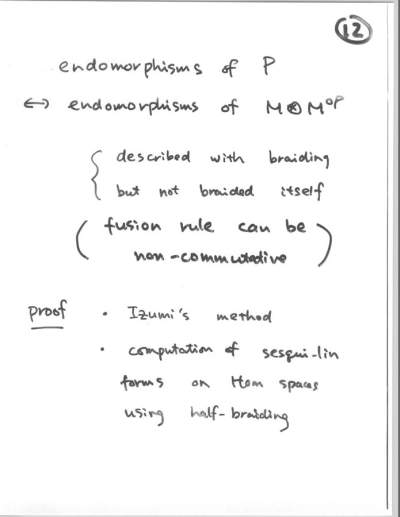 12
endomorphisms of P
↔ endomorphisms of M⊗M^op
{ described with braiding
but not braided itself
( fusion rule can be
non-commutative )
proof · Izumi's method
· computation of sesqui-lin
forms on Hom spaces
using half-braiding